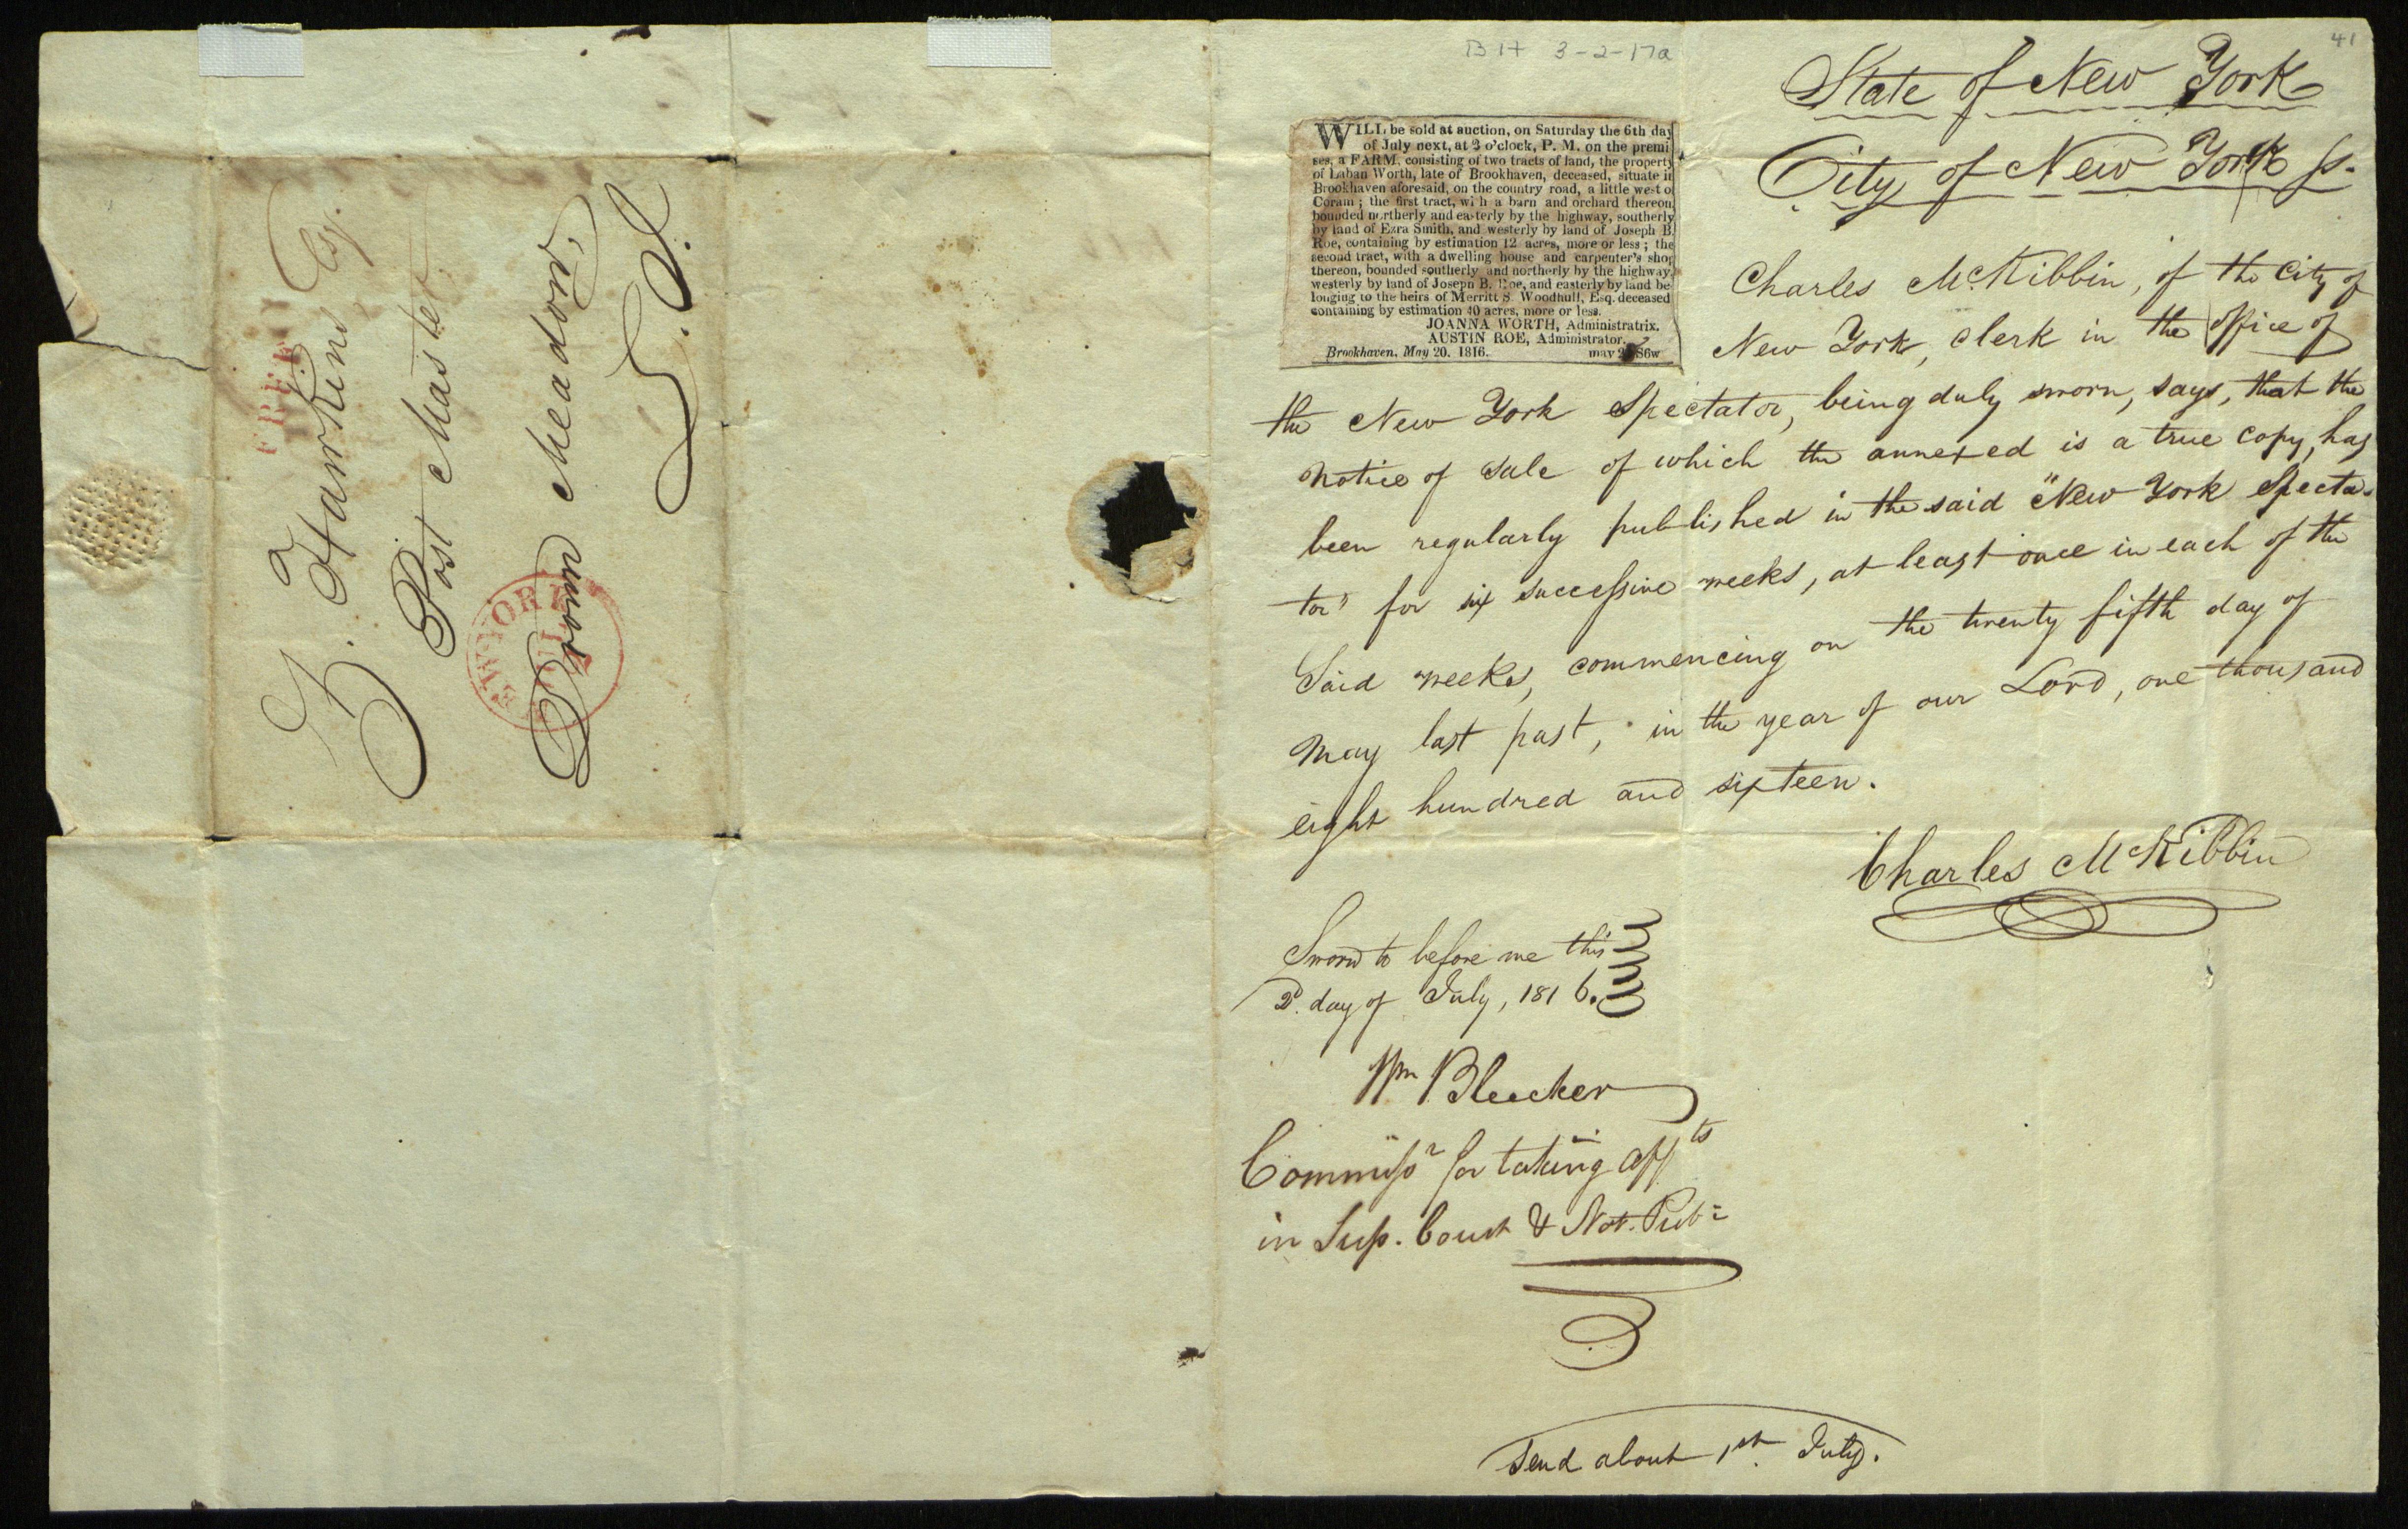 FREE
Z. Hawkins Esq.
Post Master
Drown Meadow,
L. I.
EW-YORK
JUL
2
B 17 3-2-17a
41
State of New York
City of New York ss.
WILL be sold at auction, on Saturday the 6th day
of July next, at 3 o'clock, P. M. on the premi
ses, a FARM, consisting of two tracts of land, the property
of Laban Worth, late of Brookhaven, deceased, situate in
Brookhaven aforesaid, on the country road, a little west o
Coram ; the first tract, wi h a barn and orchard thereon,
bounded northerly and easterly by the highway, southerly
by land of Ezra Smith, and westerly by land of Joseph B.
Roe, containing by estimation 12 acres, more or less ; the
second tract, with a dwelling house and carpenter's shop
thereon, bounded southerly and northerly by the highway,
westerly by land of Joseph B. Roe, and easterly by land be
longing to the heirs of Merritt S. Woodhull, Esq. deceased
containing by estimation 40 acres, more or less.
JOANNA WORTH, Administratrix.
AUSTIN ROE, Administrator.
Brookhaven, May 20. 1816. may 2 S6w
Charles McKibbin, of the City of
New York, Clerk in the office of
the New York Spectator, being duly sworn, says, that the
notice of sale of which the annexed is a true copy, has
been regularly published in the said "New York Specta-
tor" for six successive weeks, at least once in each of the
Said weeks, commencing on the twenty fifth day of
May last past, in the year of our Lord, one thousand
eight hundred and sixteen.
Charles McKibbin
Sworn to before me this
2d. day of July, 1816.
Wm Bleecker
Commissr for taking affts
in Sup. Court & Not. Pub:
Send about 1st July.